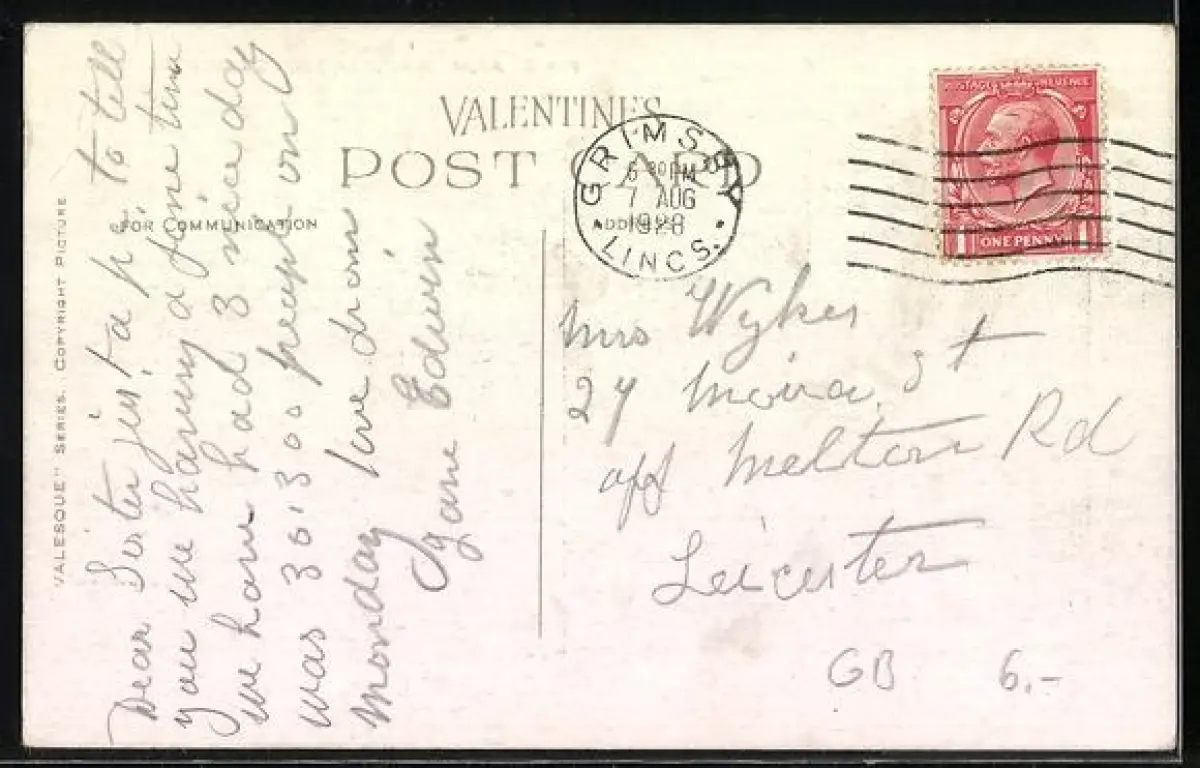 VALENTINES
POST CARD
FOR COMMUNICATION
ADDRESS
GRIMSBY
6 30 PM
7 AUG
1928
LINCS.
POSTAGE REVENUE
1 ONE PENNY 1
VALESQUE" SERIES. COPYRIGHT PICTURE
Dear Sister just a p to tell
you we having a fine time
we have had 3 nice day
was 30,300 people on
Monday love from
Jane Edwin
Mrs Wykes
27 Moira St
off Melton Rd
Leicester
GB 6.-